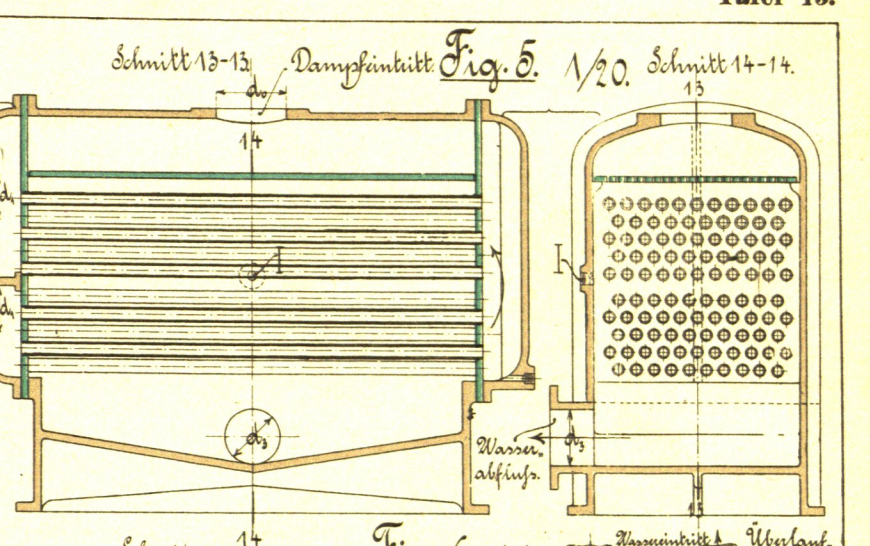 Tafel 15.
Schnitt 13-13
Dampfeintritt.
Fig. 5.
1/20.
Schnitt 14-14.
d₀
13
14
d₁
I
I
d₁
d₃
Wasser-
abfluss.
d₃
13
14
Wassereintritt
Überlauf-